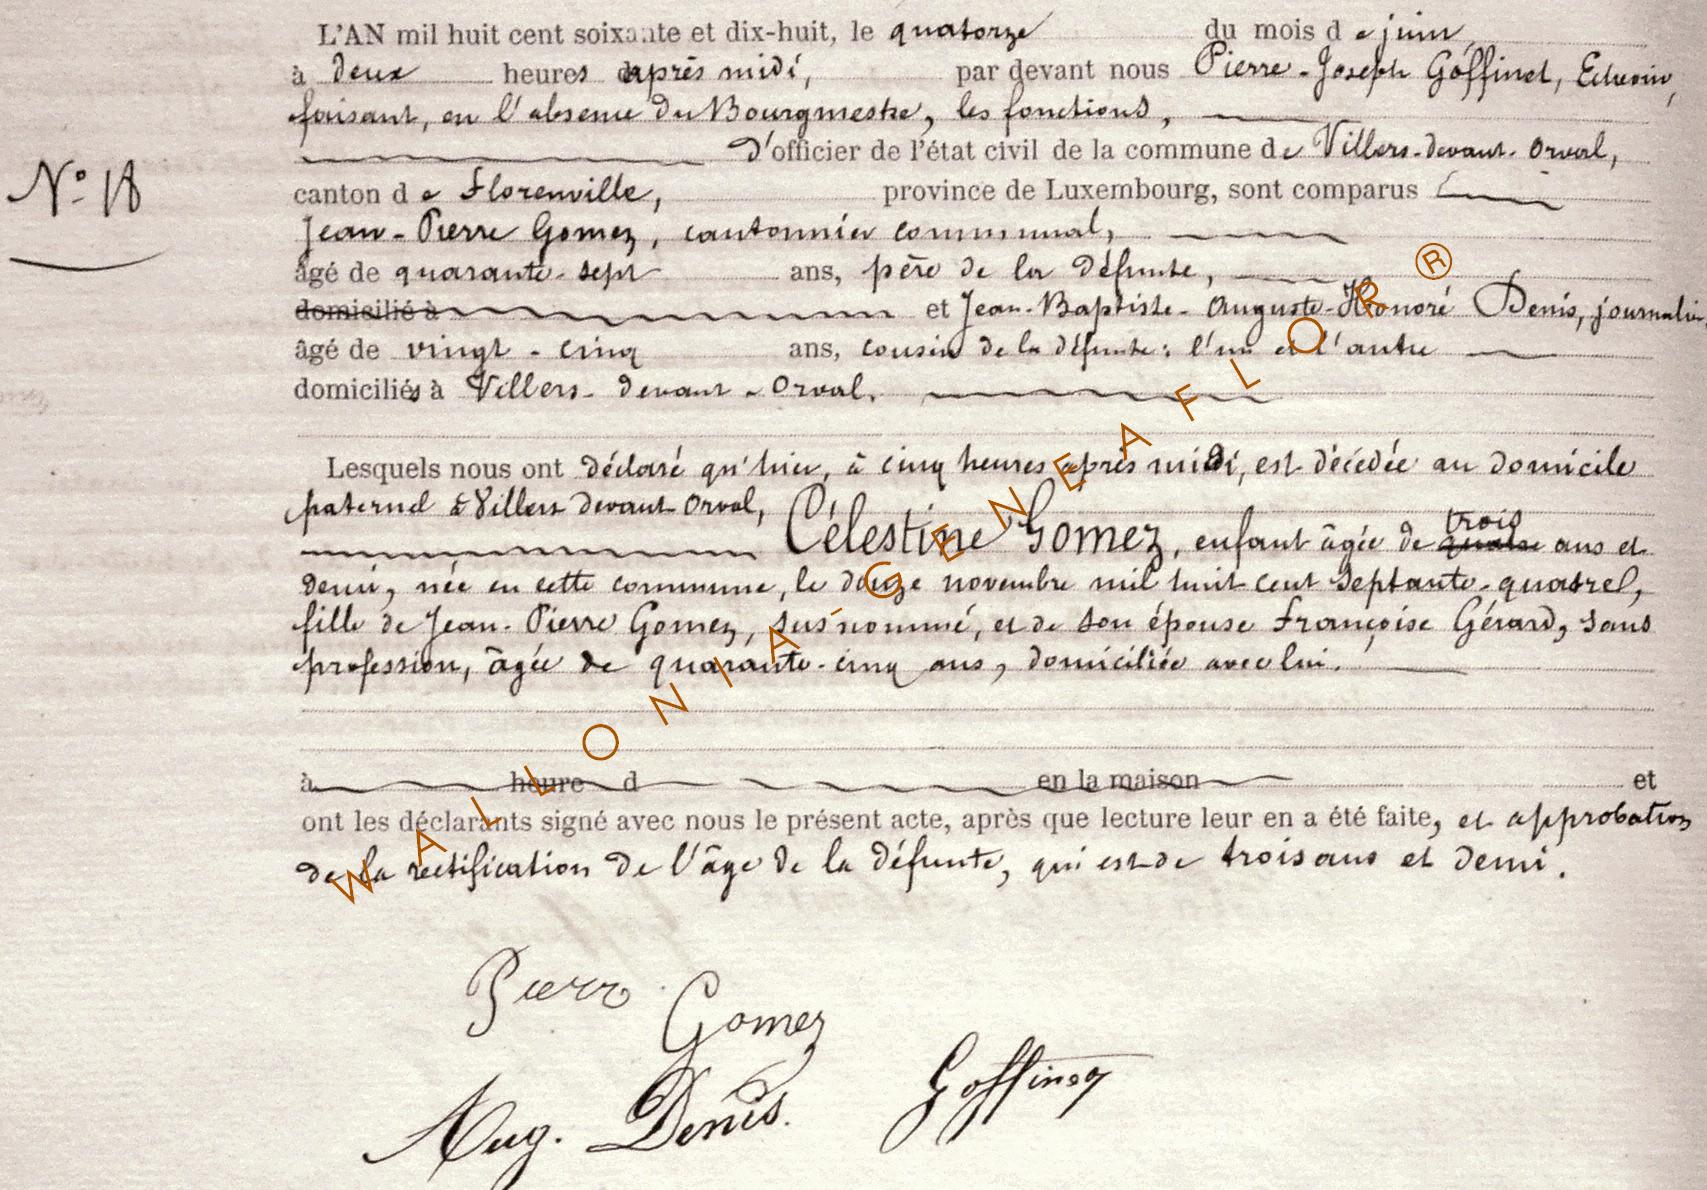 L'AN mil huit cent soixante et dix-huit, le quatorze du mois de juin,
à deux heures après midi, par devant nous Pierre-Joseph Goffinet, Echevin,
faisant, en l'absence du Bourgmestre, les fonctions,
d'officier de l'état civil de la commune de Villers-devant-Orval,
N° 18
canton de Florenville, province de Luxembourg, sont comparus
Jean-Pierre Gomez, cantonnier communal,
âgé de quarante-sept ans, père de la défunte,
domicilié à et Jean-Baptiste-Auguste-Honoré Denis, journalier
âgé de vingt-cinq ans, cousin de la défunte: l'un et l'autre
domiciliés à Villers-devant-Orval.
Lesquels nous ont déclaré qu'hier, à cinq heures après midi, est décédée au domicile
paternel à Villers devant Orval,
trois
Célestine Gomez, enfant âgée de quatre ans et
demi, née en cette commune, le douze novembre mil huit cent septante-quatre,
fille de Jean-Pierre Gomez, sus nommé, et de son épouse Françoise Gérard, sans
profession, âgée de quarante-cinq ans, domiciliée avec lui.
à heure d en la maison et
ont les déclarants signé avec nous le présent acte, après que lecture leur en a été faite, et approbation
de la rectification de l'âge de la défunte, qui est de trois ans et demi.
Pierre
Gomez
Aug. Denis. Goffinet
WALLONIA-GENEAFLOR®